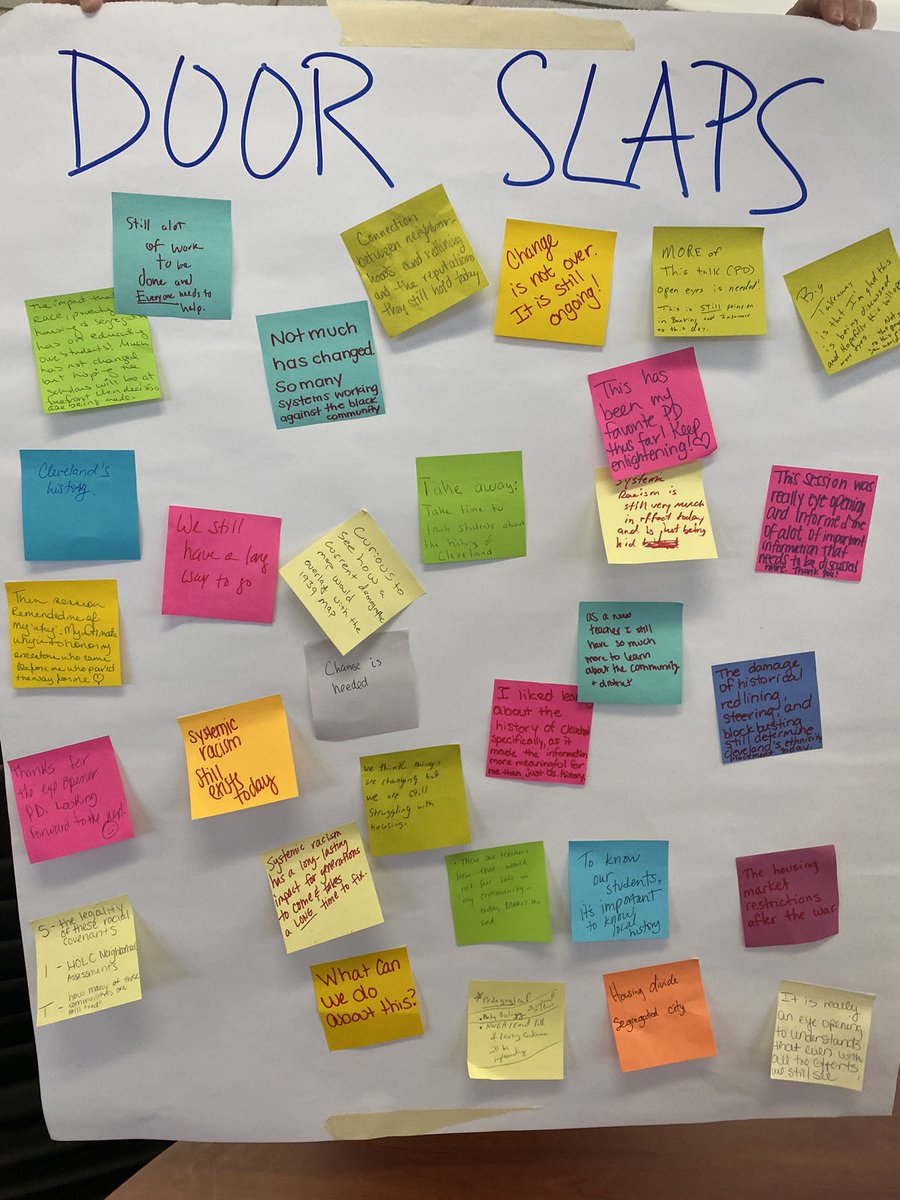 DOOR SLAPS
Still alot
of work
to be
done and
Everyone needs to
help.
Connection
between neighbor-
hoods and redlining
and the reputations
they still hold today
Change
is not over.
It is still
ongoing!
MORE of
This talk (PD)
open eyes is needed!
This is STILL going on
in Banking and Insurance
to this day.
Big
Takeaway
is that I'm glad this
is being discussed
and hopefully this will open
more eyes.
The impact that
race, poverty
housing & segregation
has on education
our students. Much
has not changed
but hoping the
scholars will be at
forefront when decisions
are being made.
Not much
has changed.
So many
systems working
against the black
community
This has
been my
favorite PD
thus far! Keep
enlightening!
Cleveland's
history.
We still
have a long
way to go
Curious to
see how a
current demographic
map would
overlap with the
1939 map
Take away:
Take time to
teach students about
the history of
Cleveland
Systemic
Racism is
still very much
in effect today
and is just being
hid
This session was
really eye opening
and informed me
of alot of important
information that
needs to be discussed
more. Thank you!
session
Reminded me of
my "why". My ultimate
why is to honor my
ancestors who came
before me who paved
the way for me
Change is
needed
as a new
teacher I still
have so much
more to learn
about the community
+ district
I liked
about the
history of Cleveland
specifically, as it
made the information
more meaningful for
me than just US history
The damage
of historical
redlining,
steering, and
blockbusting
still determine
Cleveland's ethnicity
placement today.
Systemic
racism
still
exists
today
Thanks for
the eye opener
PD. Looking
forward to the next.
We think things
are changing but
we are still
struggling with
housing.
Systemic racism
has a long-lasting
impact for generations
to come & takes
a LONG time to fix.
There are teachers
here that would
not be safe in
my community-
today. Makes me
sad
To know
our
students,
its important
to know
local
history
The housing
market
restrictions
after the war
S - the legality
of these racial
covenants
I - HOLC Neighborhood
Assessments
T - how many of these
communities are
still
What can
we do
about this?
Housing divide
Segregated city
It is really
an eye opening
to understands
that even with
all the efforts,
we still see